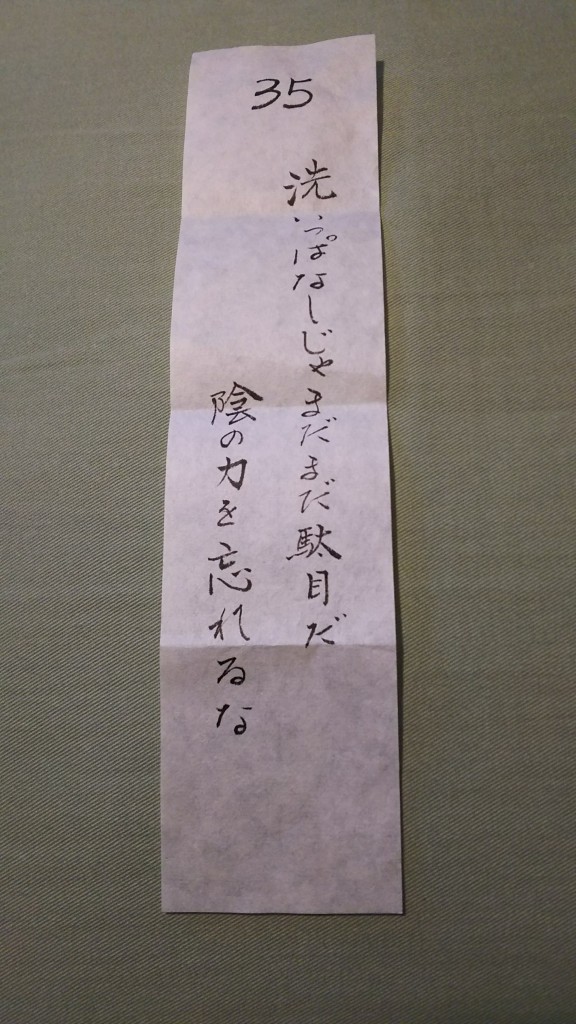 35
洗いっぱなしじゃまだまだ駄目だ
陰の力を忘れるな